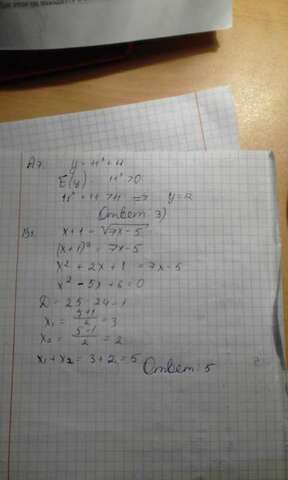 A7. y = 11ˣ + 11
E(y) 11ˣ > 0
11ˣ + 11 > 11 ⇒
Ответ 3)
B1. x+1 = √7x-5
(x+1)² = 7x-5
x² + 2x + 1 = 7x-5
x² - 5x + 6 = 0
D = 25-24 = 1
x₁ = (5+1)/2 = 3
x₂ = (5-1)/2 = 2
x₁ + x₂ = 3+2 = 5 Ответ: 5